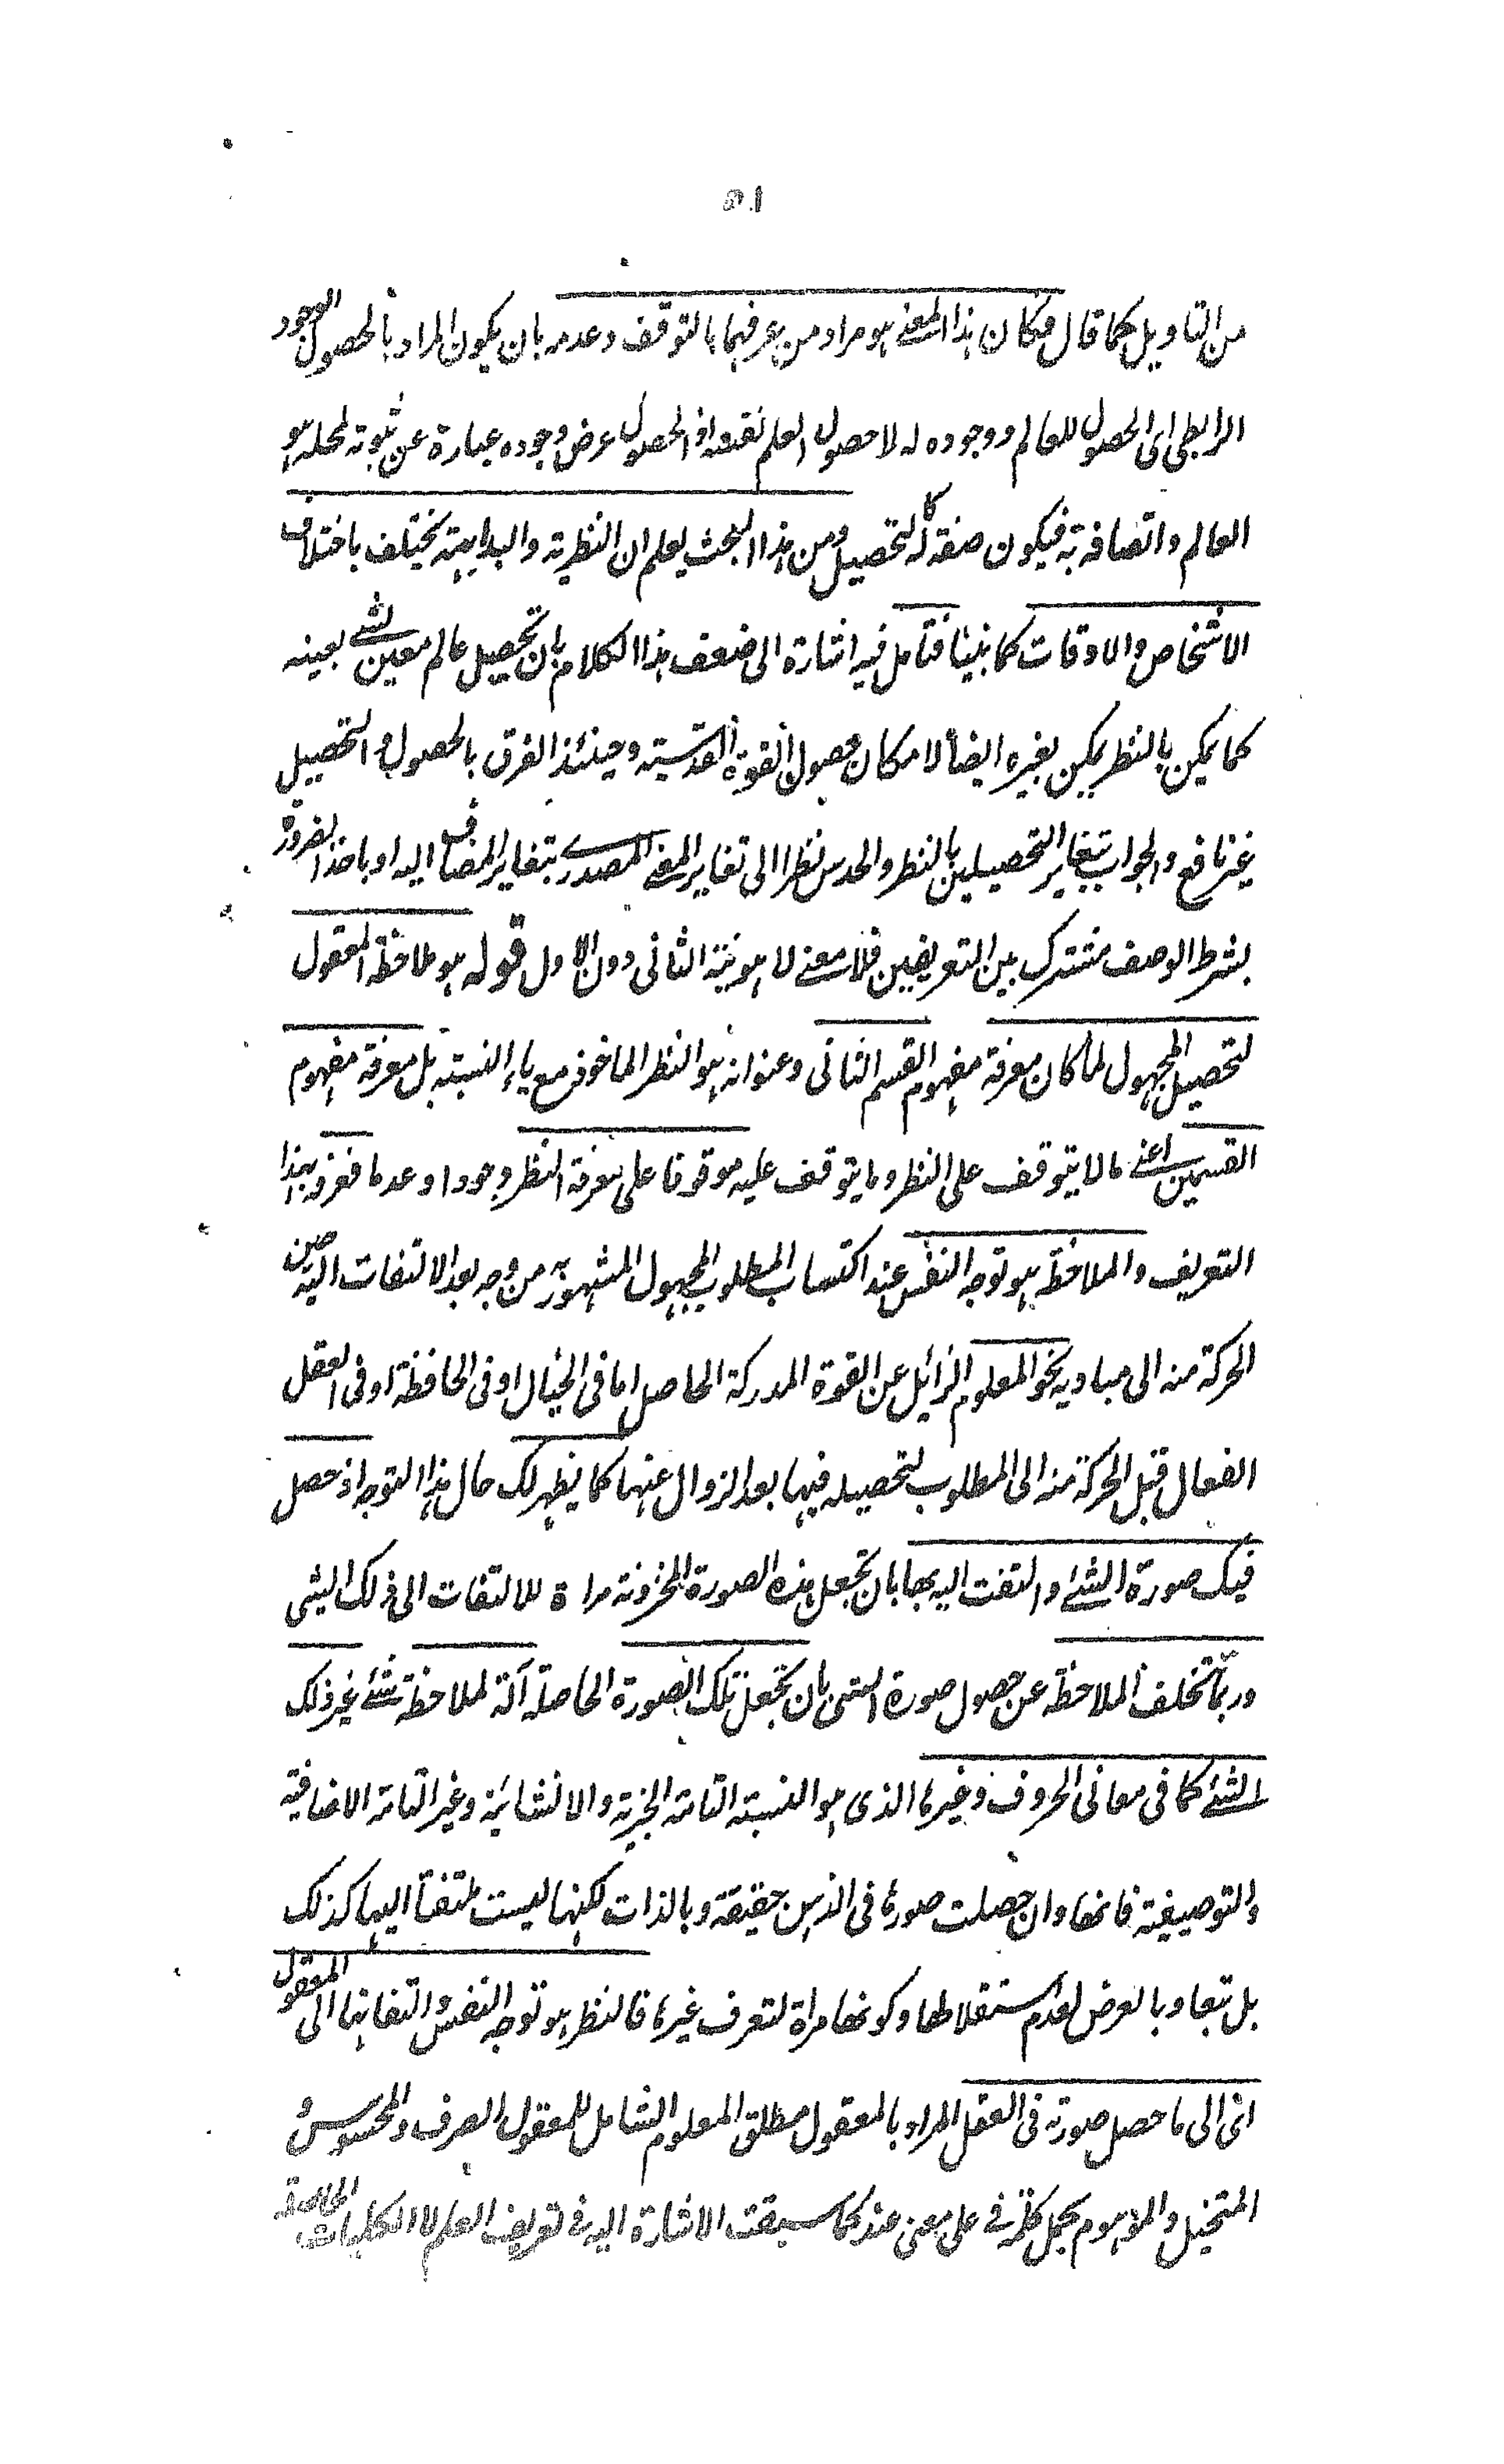 ١٥
من التاويل كما قال فكان هذا المعنے هو مراد من عرفهما بالتوقف وعدمه بان يكون المراد بالحصول الوجود
الرابطى اى الحصول للعالم ووجوده له لا حصول العلم نفسه اذ الحصول عرض وجوده عبارة عن ثبوته لمحله هو
العالم واتصافه به فيكون صفة له كالتحصيل ومن هذا البحث يعلم ان النظرية والبداهية يختلف باختلاف
الاشخاص والاوقات كما بينا فتأمل فيه اشارة الى ضعف هذا الكلام بان تحصيل عالم معين لشے بعينه
كما يمكن بالنظر يمكن بغيره ايضا لامكان حصول القوة القدسية وحينئذ الفرق بالحصول والتحصيل
غير نافع والجواب بتغاير التحصيلين بالنظر والحدس نظرا الى تغاير المعنے المصدرے بتغاير المضاف اليه او باخذ الضرورة
بشرط الوصف مشترك بين التعريفين فلا معنے لاهونية الثانى دون الاول قوله هو ملاحظة المعقول
لتحصيل المجهول لما كان معرفة مفهوم القسم الثانى وعنوانه هو النظر الماخوذ مع ياء النسبة بل معرفة مفهوم
القسمين اعنے مالا يتوقف على النظر وما يتوقف عليه موقوفا على معرفة النظر وجودا وعدما فعرفه بهذا
التعريف والملاحظة هو توجه النفس عند اكتساب المطلوب المجهول المشهور به من وجه بعد الالتفات اليه حين
الحركة منه الى مباديه نحو المعلوم الزائل عن القوة المدركة الحاصل اما فى الخيال او فى الحافظة او فى العقل
الفعال قبل الحركة منه الى المطلوب لتحصيله فيها بعد الزوال عنها كما يظهر لك حال هذا التوجه اذ حصل
فيك صورة الشئے والتفت اليه بها بان تجعل هذه الصورة المخزونة مراة للالتفات الى ذلك الشى
وربما تخلف الملاحظة عن حصول صورة الشى بان تجعل تلك الصورة الحاصلة آلة لملاحظة شئے غير ذلك
الشئے كما فى معانى الحروف وغيرها الذى هو النسبة التامة الخبرية والانشائية وغير التامة الاضافية
والتوصيفية فانها وان حصلت صورها فى الذهن حقيقة وبالذات لكنها ليست ملتفتا اليها كذلك
بل تبعا وبالعرض لعدم استقلالها وكونها مراة لتعرف غيرها فالنظر هو توجه النفس والتفاتها الى المعقول
اى الى ما حصل صورته فى العقل المراد بالمعقول مطلق المعلوم الشامل للمعقول الصرف والمحسوس و
المتخيل والموهوم بحمل كلمة فى على معنى عند كما سبقت الاشارة اليه فى تعريف العلم لا الكليات الحاصلة